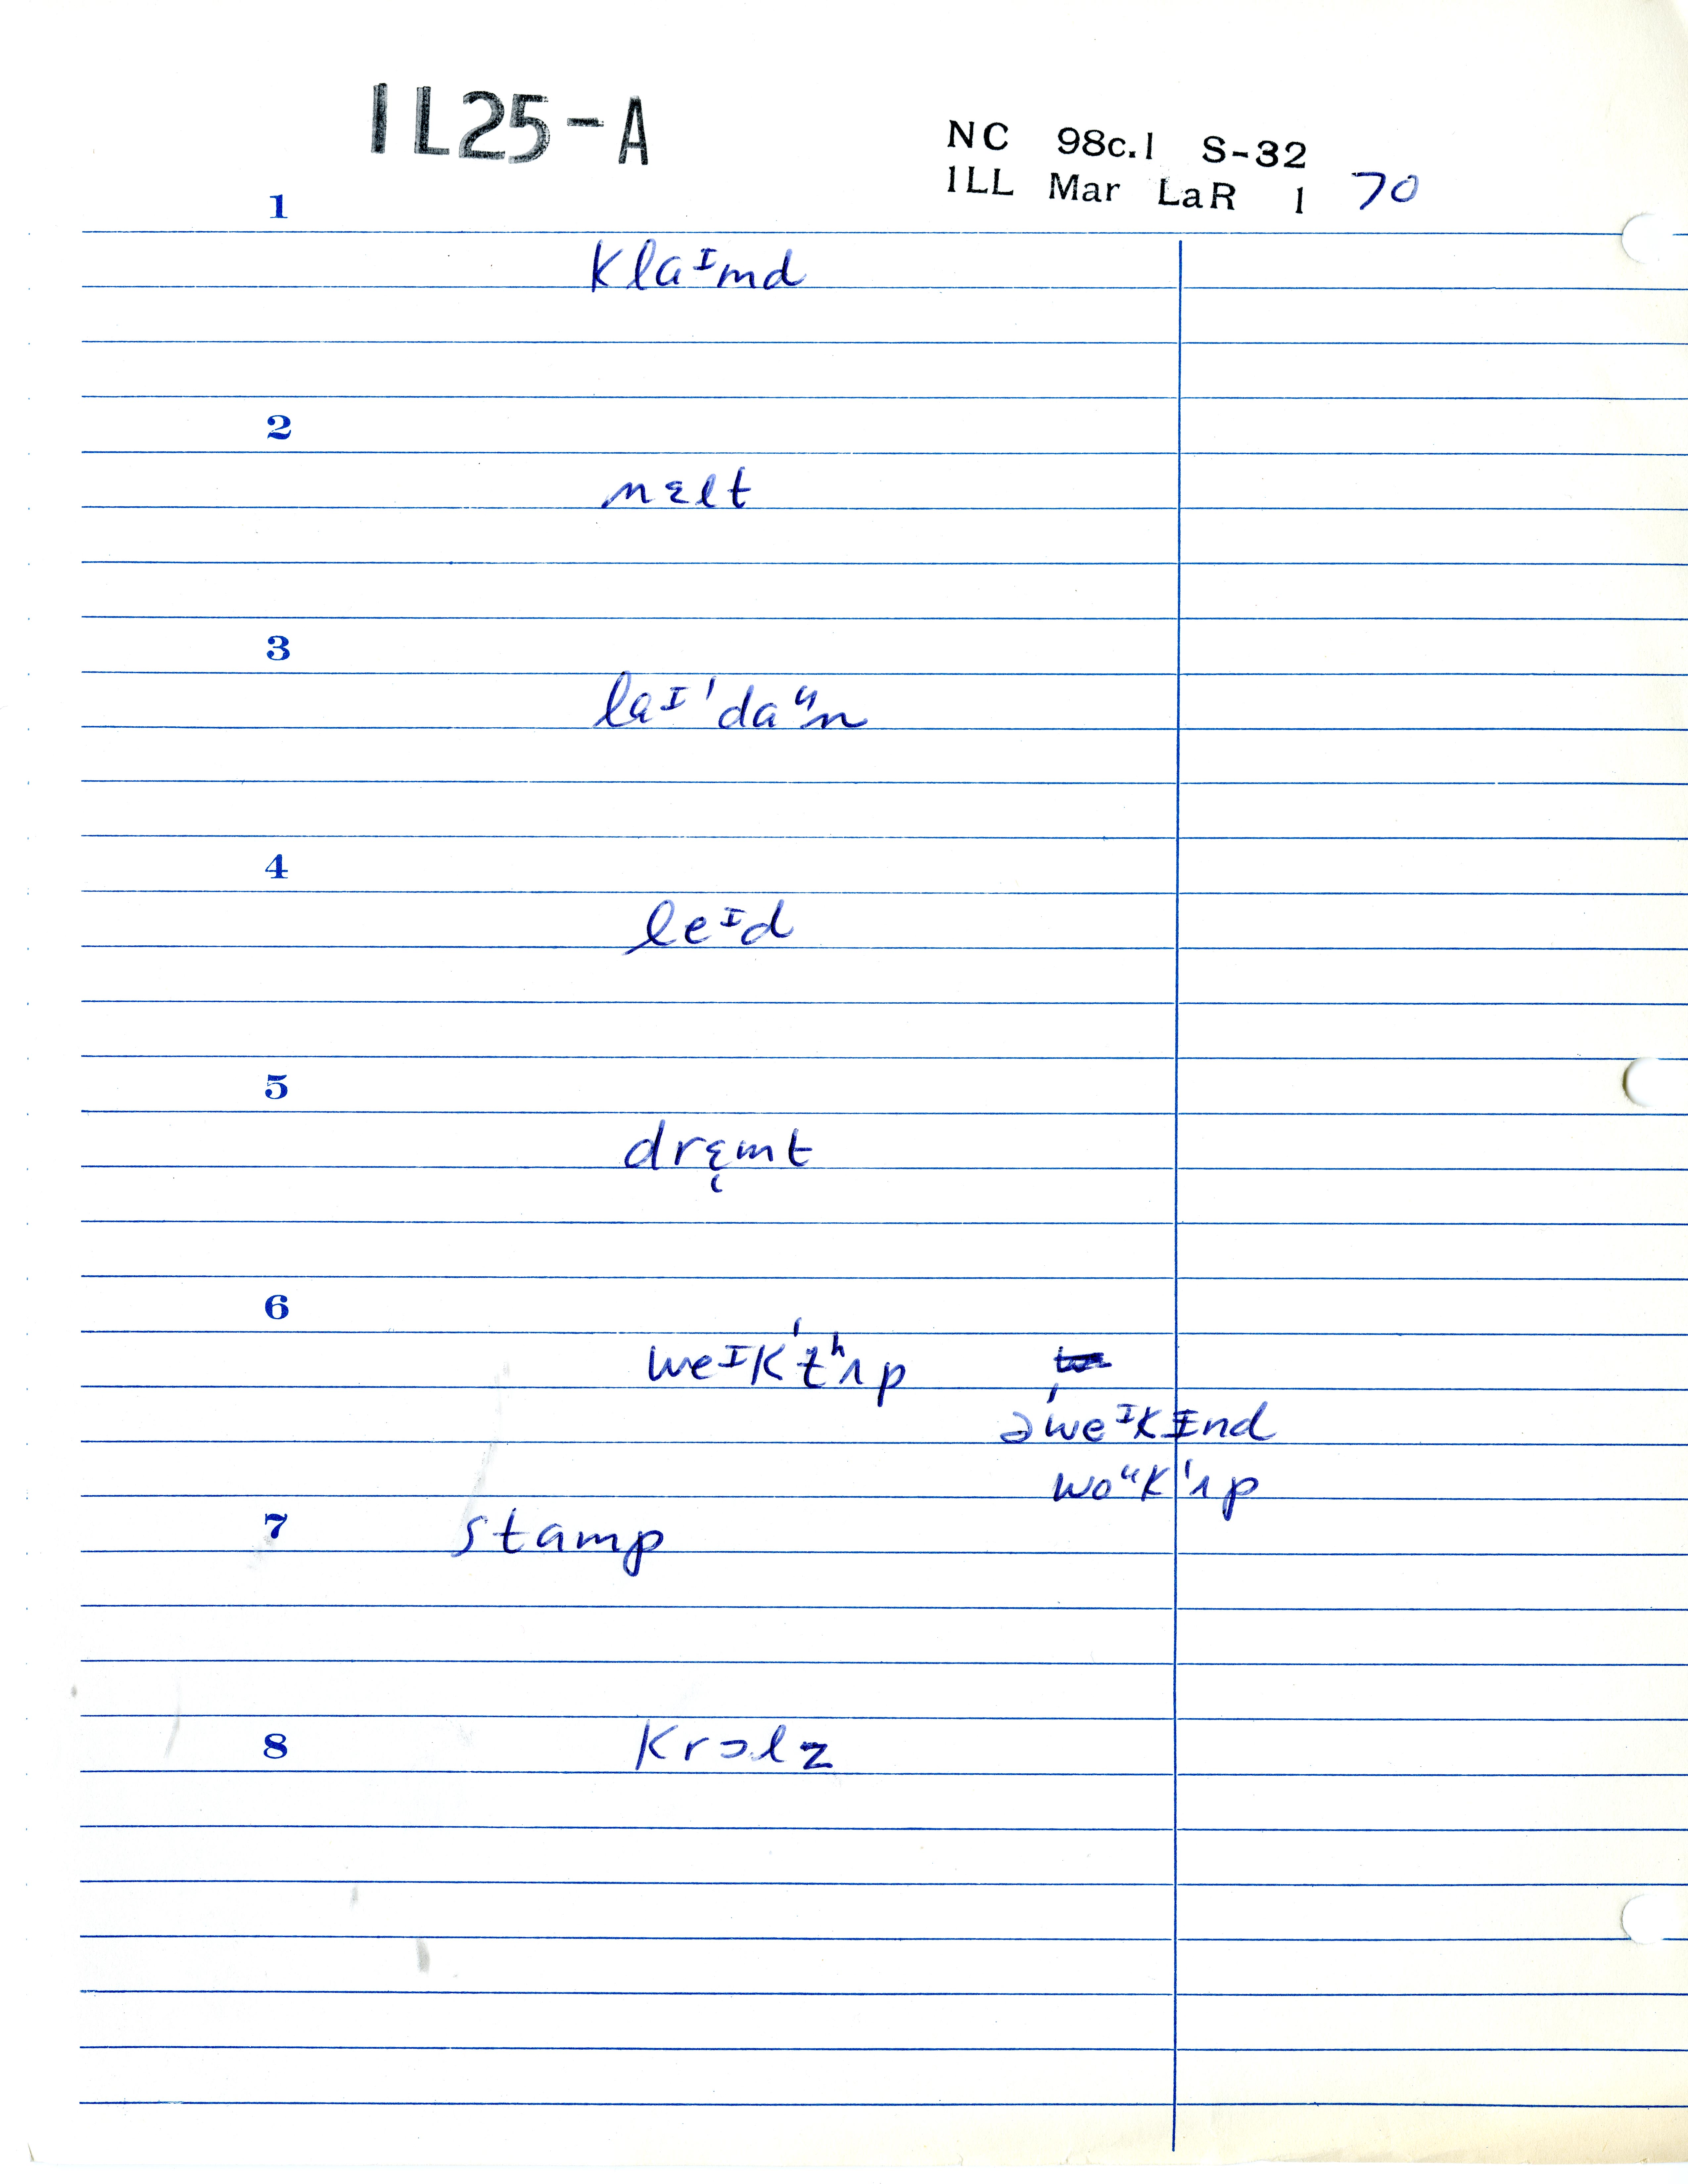 IL25-A
NC 98c.1 S-32
ILL Mar LaR 1 70
1
klaᴵmd
2
nɛlt
3
laᴵˈdaᶸn
4
leᴵd
5
drɛ̨mt
6
weᴵkˈt̬ʰʌp
əˈweᴵkɪnd
woᶸkˈʌp
7
stamp
8
krɔlz